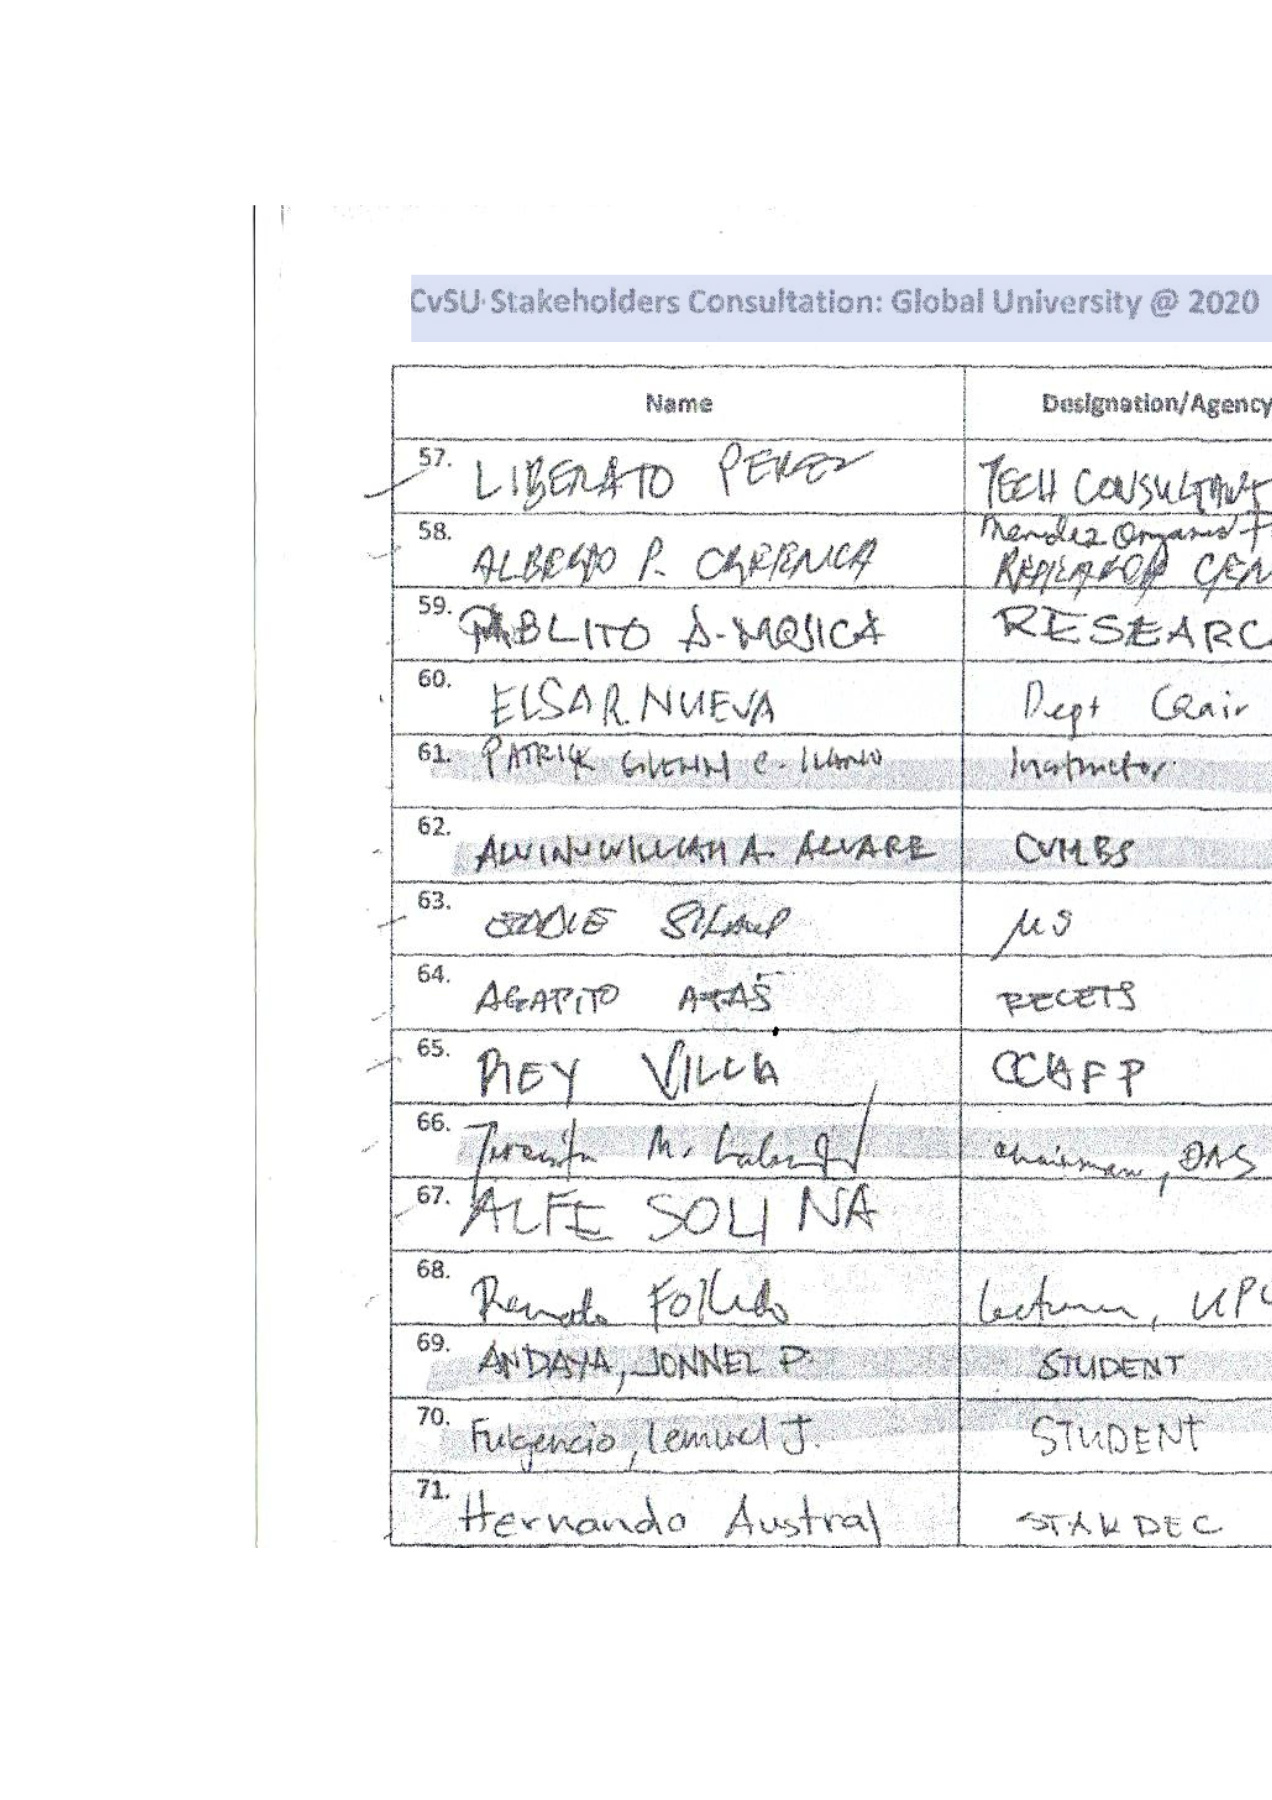 CvSU Stakeholders Consultation: Global University @ 2020
Name Designation/Agency
57. LIBERATO PEREZ TECH CONSULTANT
58. Mendez Organic
P.
59. PABLITO A. MOJICA RESEARC
60. ELSA R. NUEVA Dept Chair
61. PATRICK GLENN C. ILANO Instructor
62. ALVIN WILLIAM A. ALVARE CVMBS
63. EDDIE SILAN
64. AGAPITO RECETS
65. REY VILLA
66. M. Chairman, DAS
67. ALFE SOLINA
68. Renato Folledo Lecturer,
69. ANDAYA, JONNEL P. STUDENT
70. Fulgencio, Lemuel J. STUDENT
71. Hernando Austral STARDEC